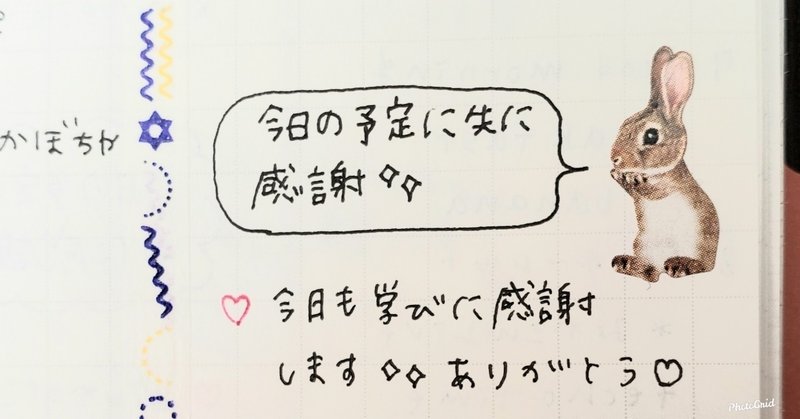 かぼちゃ
今日の予定に先に
感謝✧✧
♡ 今日も学びに感謝
します✧✧ ありがとう♡
PhotoGrid